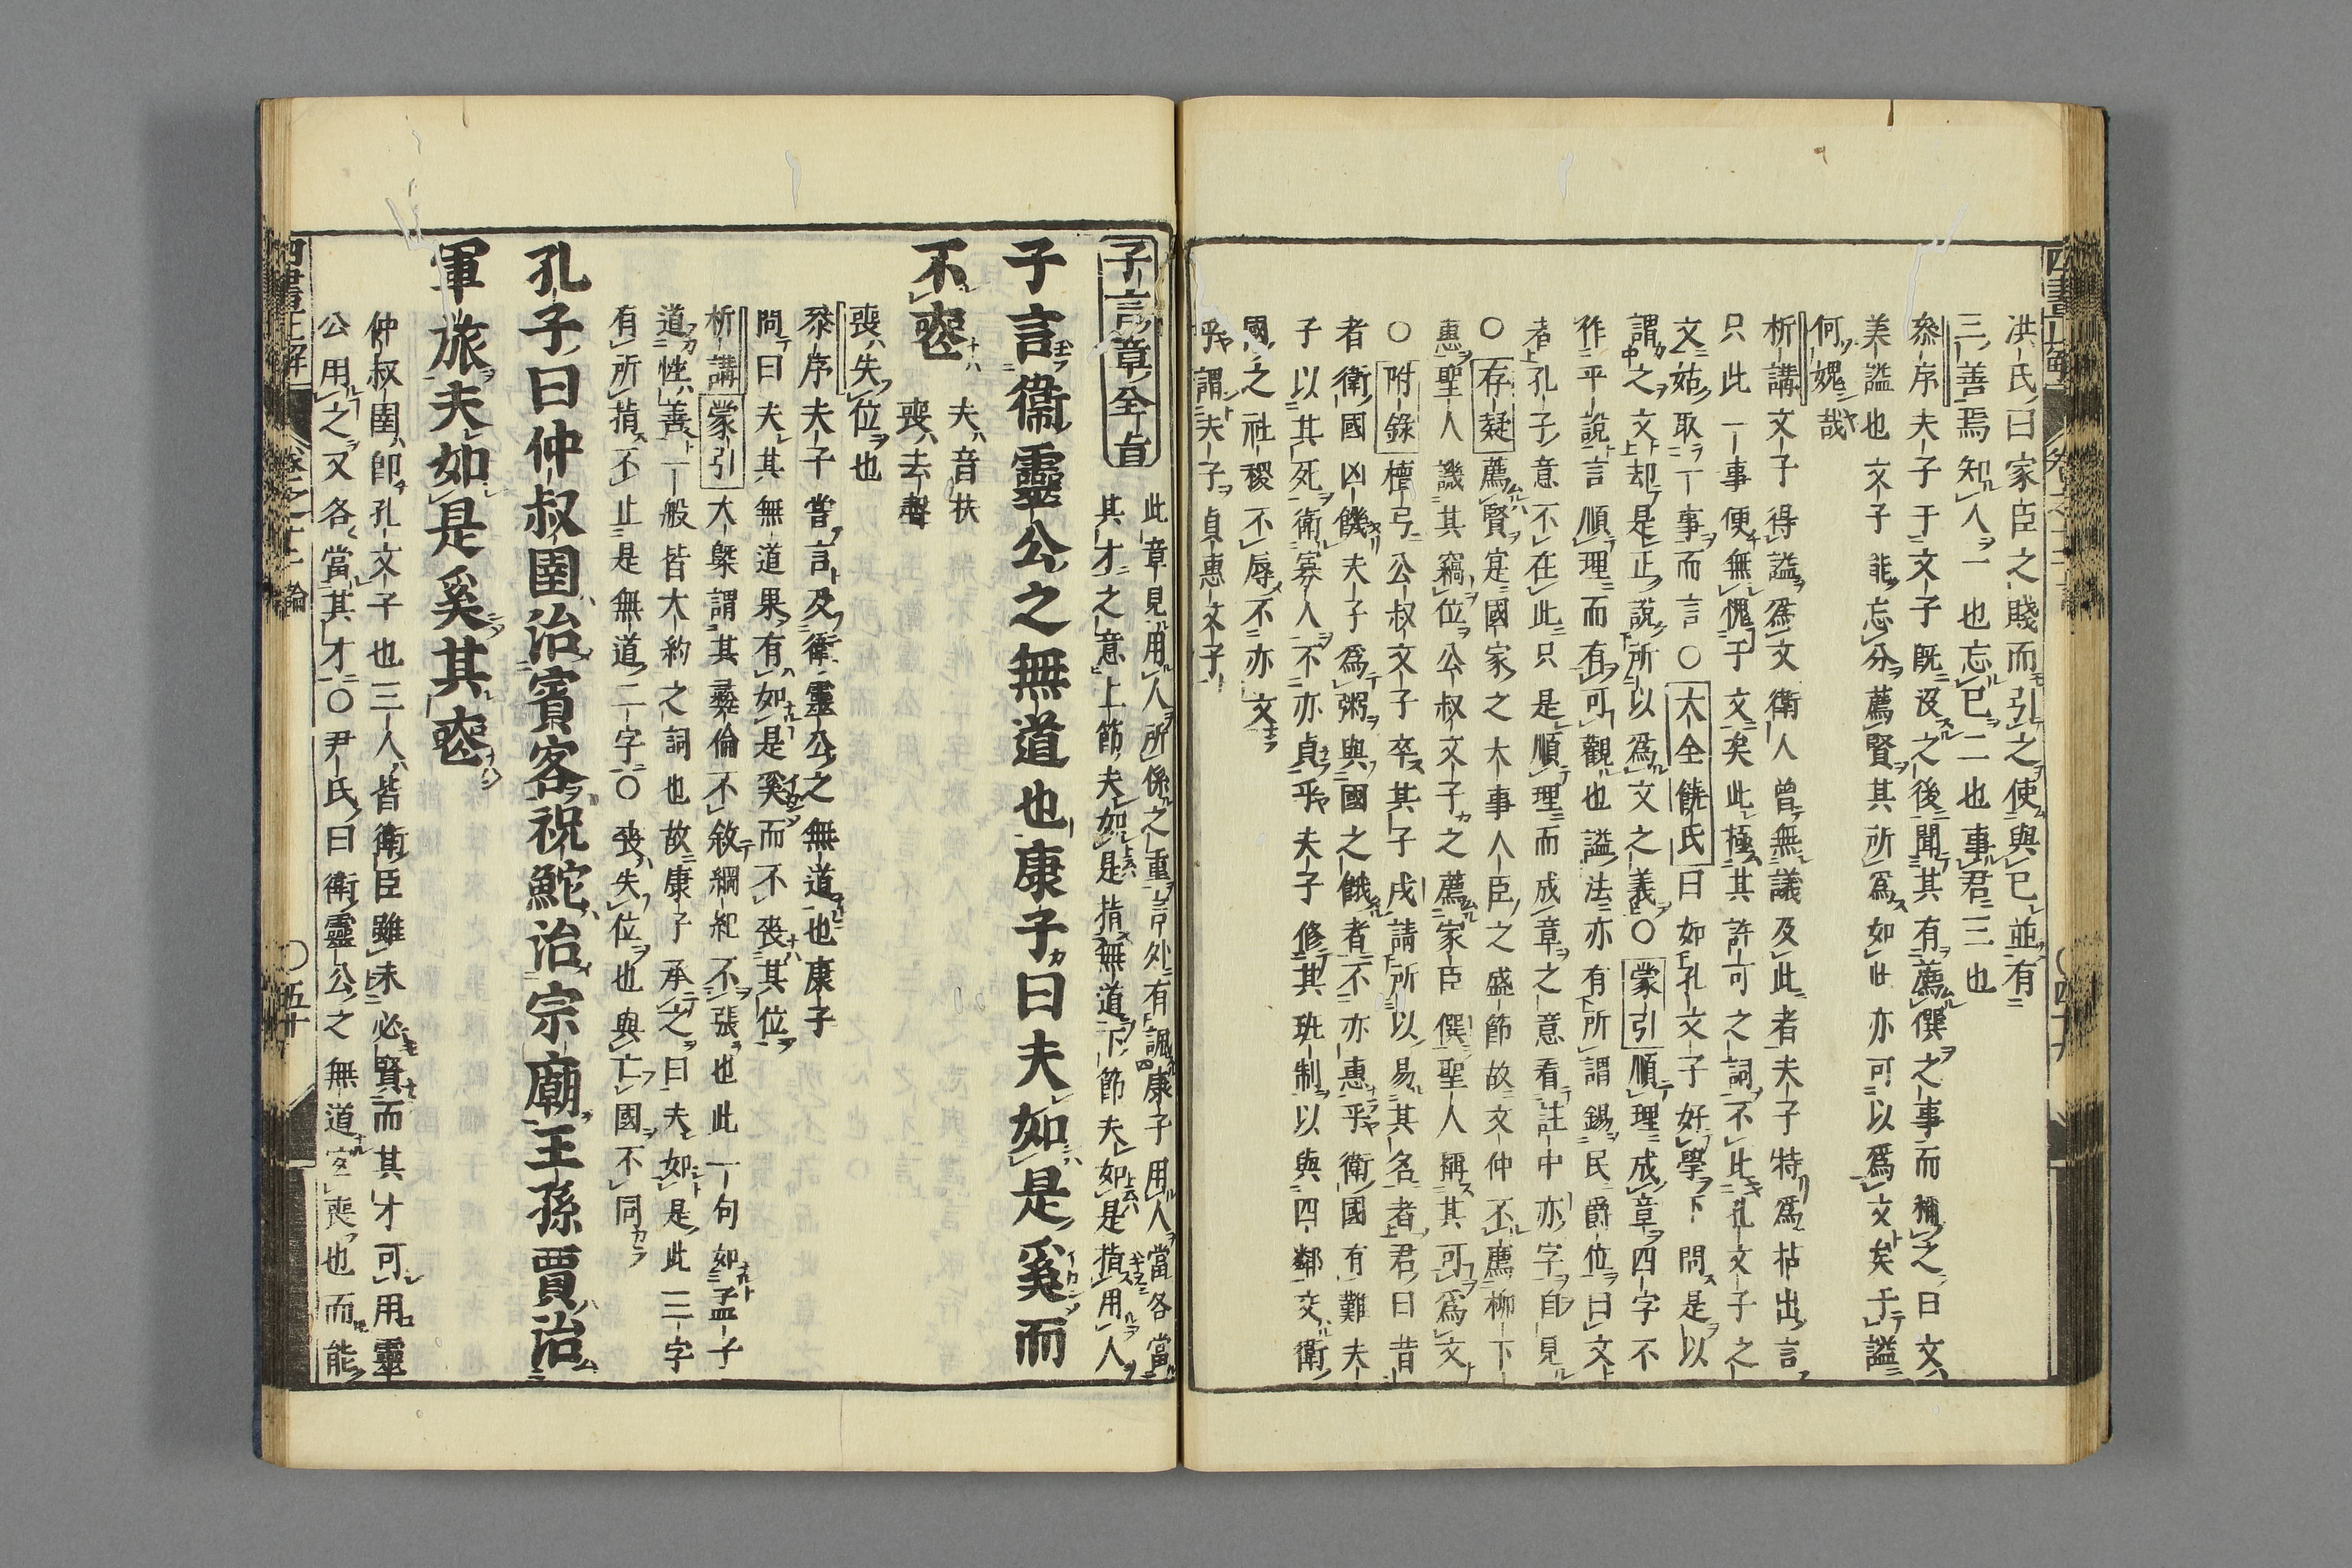 洪氏曰家臣之賤而引之使與己並有
三善焉知人一也忘己二也事君三也
叅序夫子于文子既沒之後聞其有薦僎之事而稱之曰文
美謚也文子能忘分薦賢其所爲如此亦可以爲文矣于謚
何媿哉
析講文子得謚爲文衛人曾無議及此者夫子特爲拈出言
只此一事便無愧于文矣此極其許可之詞不比孔文子之
文姑取一事而言○大全饒氏曰如孔文子好學下問是以
謂之文却是正說所以爲文之義○蒙引順理成章四字不
作平說言順理而有可觀也謚法亦有所謂錫民爵位曰文
者孔子意不在此只是順理而成章之意看註中亦字自見
○存疑薦賢寔國家之大事人臣之盛節故文仲不薦柳下
惠聖人譏其竊位公叔文子之薦家臣僎聖人稱其可爲文
○附錄檀弓公叔文子卒其子戍請所以易其名者君曰昔
者衛國凶饑夫子爲粥與國之餓者不亦惠乎衛國有難夫
子以其死衛寡人不亦貞乎夫子修其班制以與四鄰交衛
國之社稷不辱不亦文
乎謂夫子貞惠文子
子言章全旨
此章見用人所係之重言外有諷康子用人當各當
其才之意上節夫如是指無道下節夫如是指用人
子言衞靈公之無道也康子曰夫如是奚而
不喪
夫音扶
喪去聲
喪失位也
叅序夫子嘗言及衛靈公之無道也康子
問曰夫其無道果有如是奚而不喪其位
析講蒙引大槩謂其彞倫不敘綱紀不張也此一句如孟子
道性善一般皆大約之詞也故康子承之曰夫如是此三字
有所指不止是無道二字○喪失位也與亡國不同
孔子曰仲叔圉治賓客祝鮀治宗廟王孫賈治
軍旅夫如是奚其喪
仲叔圉卽孔文子也三人皆衛臣雖未必賢而其才可用靈
公用之又各當其才○尹氏曰衛靈公之無道宜喪也而能